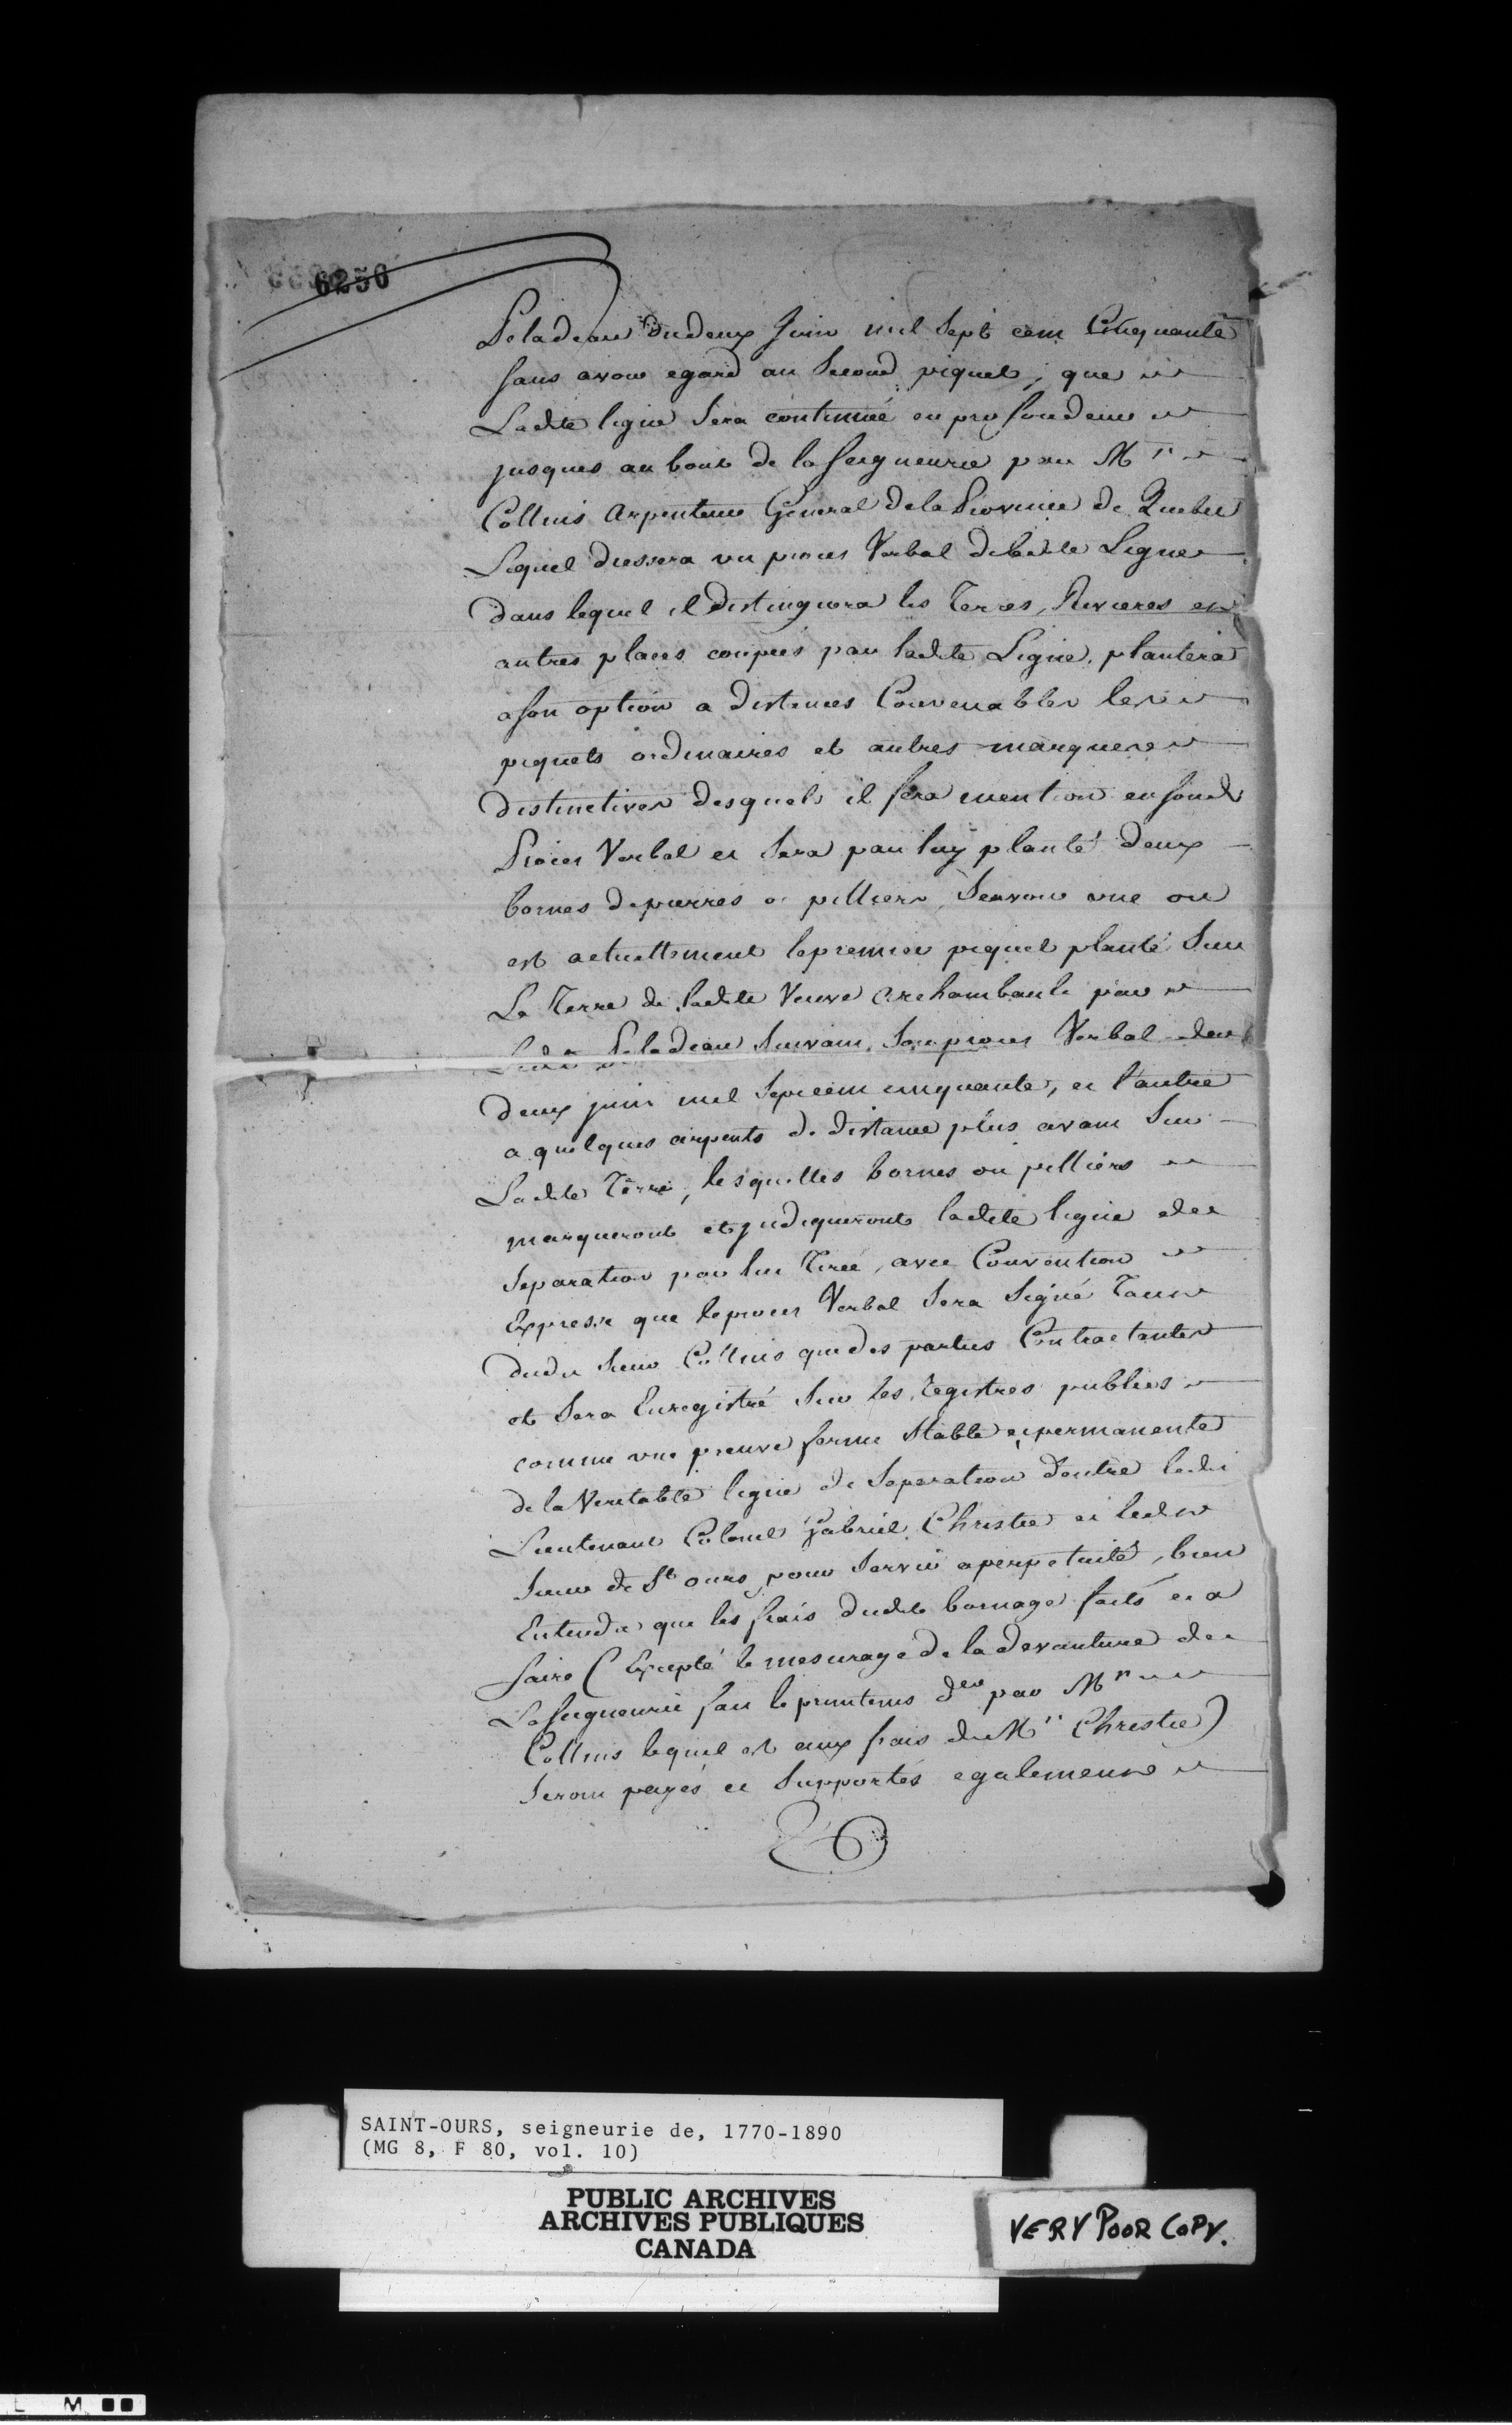 6250
Peladeau du deux Juin mil Sept cent Cinquante
sans avoir egard au Second piquet, que
Ladite ligne Sera continuée en profondeur
jusques au bout de la seigneurie par Mr
Collins Arpenteur General de la Province de Quebec
Lequel dressera un proces Verbal de ladite Ligne
dans lequel il distinguera les Terres, Rivieres et
autres places coupées par ladite Ligne, plantera
a son option a distances Convenables les
piquets ordinaires et autres marques
distinctives desquels il fera mention en sondt
Proces Verbal et Sera par luy planté deux
bornes de pierres ou pilliers, Scavoir une ou
est actuellement le premier piquet planté Sur
La Terre de ladite Veuve Archambault par
Peladeau Suivant Son proces Verbal du
deux juin mil Sept cent cinquante, et l'autre
a quelques arpents de distance plus avant Sur
Ladite Terre, lesquelles bornes ou pilliers
marqueront et jndiqueront ladite ligne de
Separation par lui Tirée, avec Convention
Expresse que le proces Verbal Sera Signé Tant
dudit Sieur Collins que des parties Contractantes
et Sera Enregistré Sur les registres publics
comme une preuve ferme Stable et permanente
de la Veritable ligne de Separation d'entre ledit
Lieutenant Colonel Gabriel Christie et ledit
Sieur de St ours pour Servir a perpetuité, bien
Entendu que les frais dudit bornage faits et a
faire (Excepté le mesurage de la devanture de
La seigneurie fait le printems der par Mr
Collins lequel est aux frais de Mr Christie)
Seront payés et Supportés egalement
SAINT-OURS, seigneurie de, 1770-1890
(MG 8, F 80, vol. 10)
PUBLIC ARCHIVES
ARCHIVES PUBLIQUES
CANADA
VERY POOR COPY.
L M